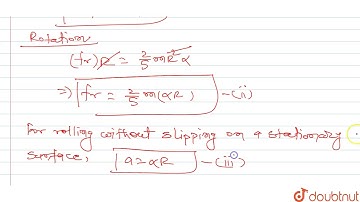 Rotation
(fr)R = 2/5 mR²α
⇒ fr = 2/5 m(αR) -(ii)
For rolling without slipping on a stationary
surface, a=αR -(iii)
doubtnut